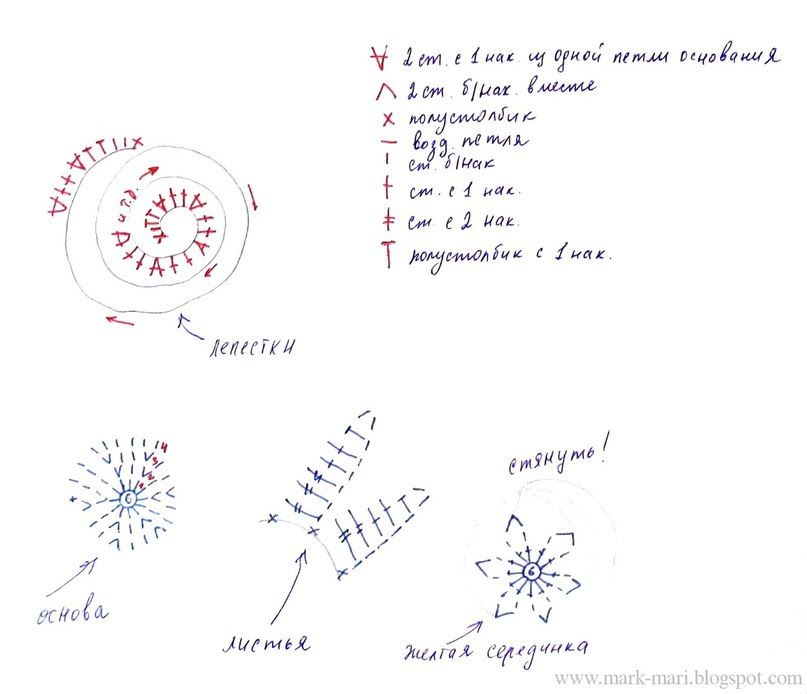 2 ст. с 1 нак. из одной петли основания
2 ст. б/нак. вместе
полустолбик
возд. петля
ст. б/нак
ст. с 1 нак.
ст с 2 нак.
полустолбик с 1 нак.
и т.д.
лепестки
4
3
2
1
6
основа
листья
стянуть!
6
желтая серединка
www.mark-mari.blogspot.com